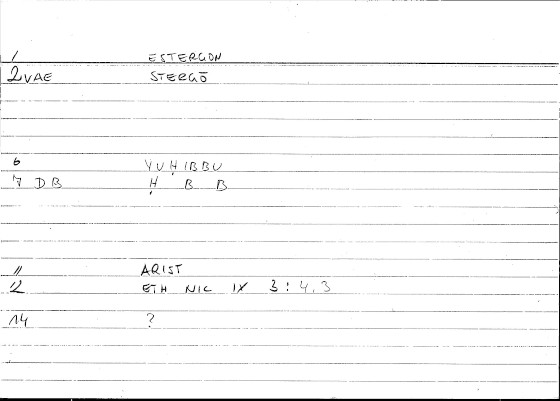 1 ESTERGON
2 VAE STERGŌ
6 YUḤIBBU
7 DB Ḥ B B
11 ARIST
12 ETH NIC IX 3:4.3
14 ?